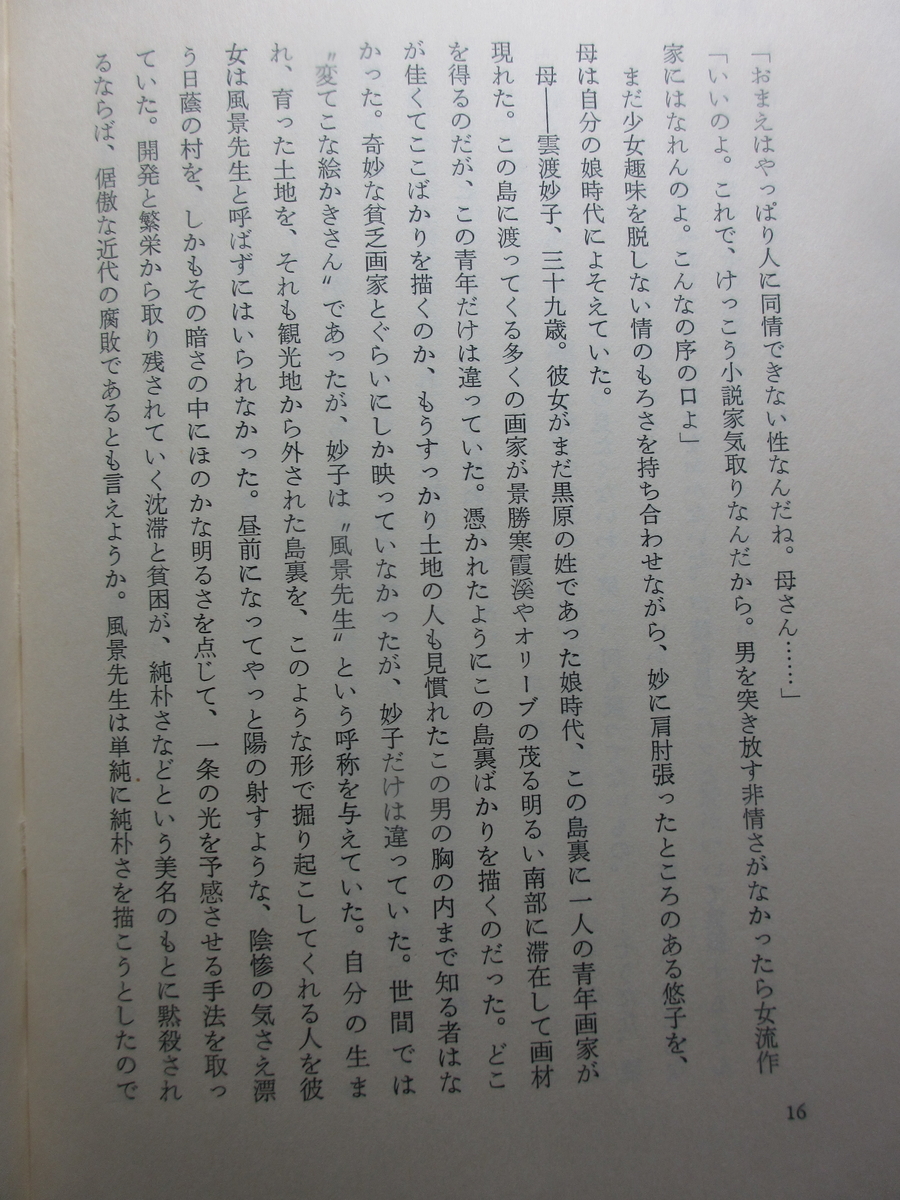 「おまえはやっぱり人に同情できない性なんだね。母さん……」
「いいのよ。これで、けっこう小説家気取りなんだから。男を突き放す非情さがなかったら女流作
家にはなれんのよ。こんなの序の口よ」
まだ少女趣味を脱しない情のもろさを持ち合わせながら、妙に肩肘張ったところのある悠子を、
母は自分の娘時代によそえていた。
母――雲渡妙子、三十九歳。彼女がまだ黒原の姓であった娘時代、この島裏に一人の青年画家が
現れた。この島に渡ってくる多くの画家が景勝寒霞溪やオリーブの茂る明るい南部に滞在して画材
を得るのだが、この青年だけは違っていた。憑かれたようにこの島裏ばかりを描くのだった。どこ
が佳くてここばかりを描くのか、もうすっかり土地の人も見慣れたこの男の胸の内まで知る者はな
かった。奇妙な貧乏画家とぐらいにしか映っていなかったが、妙子だけは違っていた。世間では
〝変てこな絵かきさん〟であったが、妙子は〝風景先生〟という呼称を与えていた。自分の生ま
れ、育った土地を、それも観光地から外された島裏を、このような形で掘り起こしてくれる人を彼
女は風景先生と呼ばずにはいられなかった。昼前になってやっと陽の射すような、陰惨の気さえ漂
う日蔭の村を、しかもその暗さの中にほのかな明るさを点じて、一条の光を予感させる手法を取っ
ていた。開発と繁栄から取り残されていく沈滞と貧困が、純朴さなどという美名のもとに黙殺され
るならば、倨傲な近代の腐敗であるとも言えようか。風景先生は単純に純朴さを描こうとしたので
16